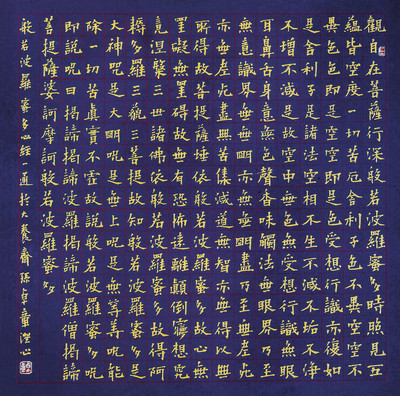 觀自在菩薩行深般若波羅蜜多時照見五
蘊皆空度一切苦厄舍利子色不異空空不
異色色即是空空即是色受想行識亦復如
是舍利子是諸法空相不生不滅不垢不淨
不增不減是故空中無色無受想行識無眼
耳鼻舌身意無色聲香味觸法無眼界乃至
無意識界無無明亦無無明盡乃至無老死
亦無老死盡無苦集滅道無智亦無得以無
所得故菩提薩埵依般若波羅蜜多故心無
罣礙無罣礙故無有恐怖遠離顛倒夢想究
竟涅槃三世諸佛依般若波羅蜜多故得阿
耨多羅三藐三菩提故知般若波羅蜜多是
大神呪是大明呪是無上呪是無等等呪能
除一切苦真實不虛故說般若波羅蜜多呪
即說呪曰揭諦揭諦波羅揭諦波羅僧揭諦
菩提薩婆訶摩訶般若波羅蜜多
般若波羅蜜多心經一通